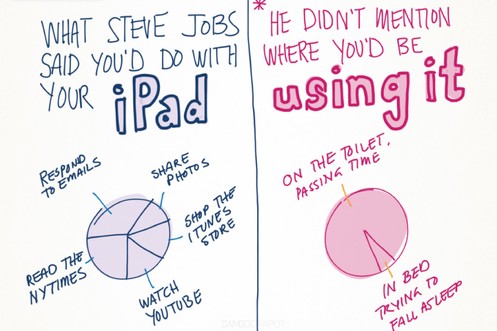 WHAT STEVE JOBS
SAID YOU'D DO WITH
YOUR iPad
RESPOND
TO EMAILS
SHARE
PHOTOS
SHOP THE
ITUNES
STORE
READ THE
NYTIMES
WATCH
YOUTUBE
* HE DIDN'T MENTION
WHERE YOU'D BE
using it
ON THE TOILET,
PASSING TIME
IN BED
TRYING TO
FALL ASLEEP